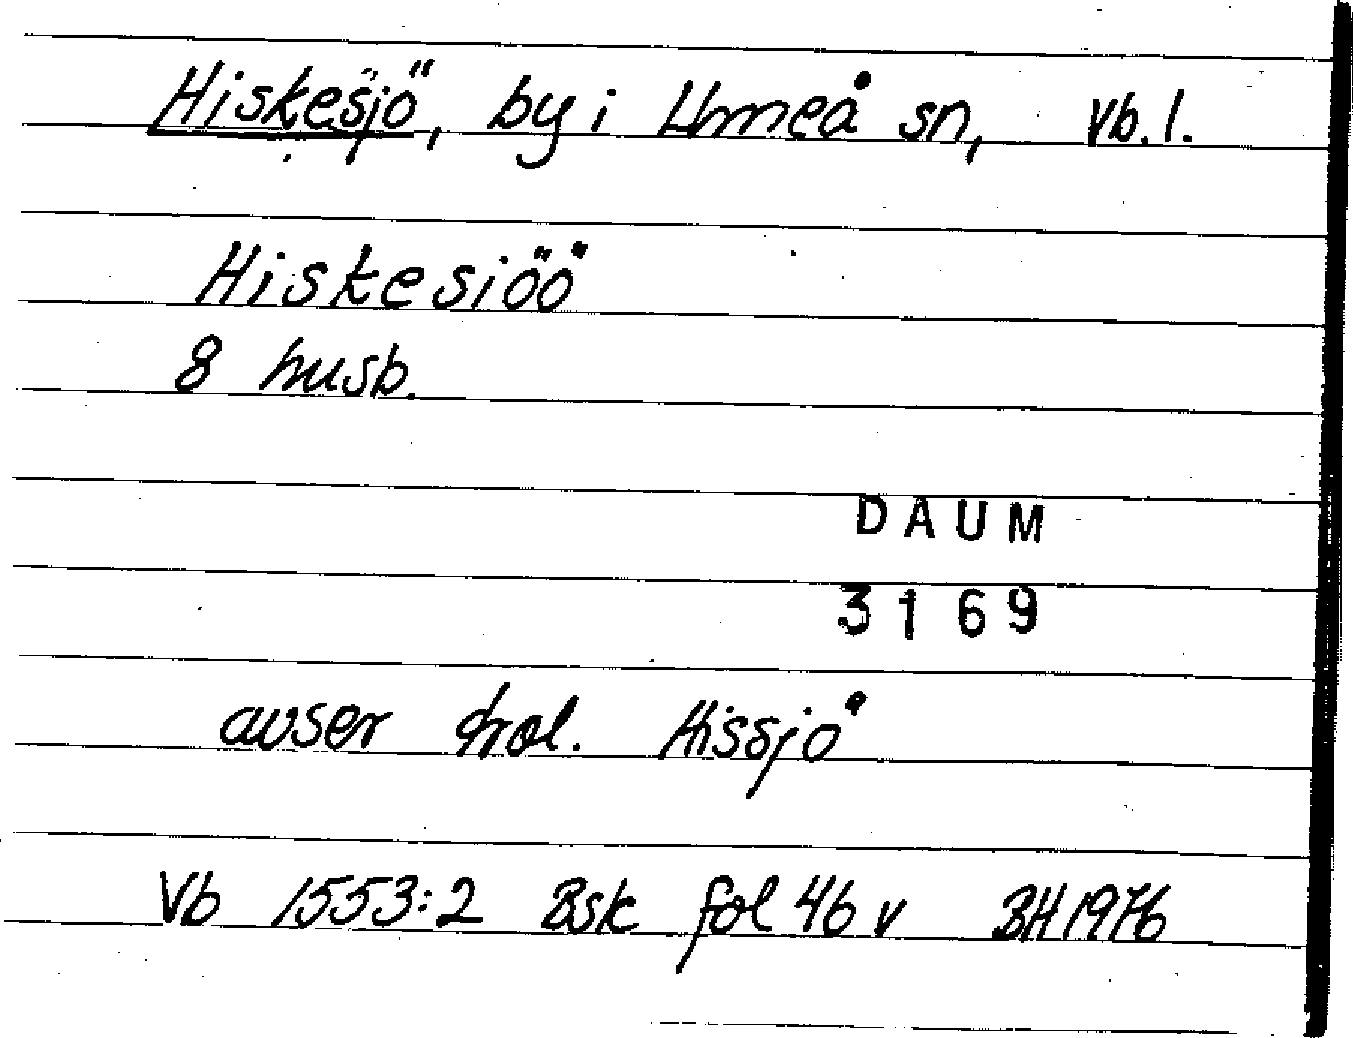 Hiskesjö, by i Umeå sn, Vb. l.
Hiskesiöö
8 husb.
DAUM
3169
avser trol. Hissjö
Vb 1553:2 Bsk fol 46 v BH 1976